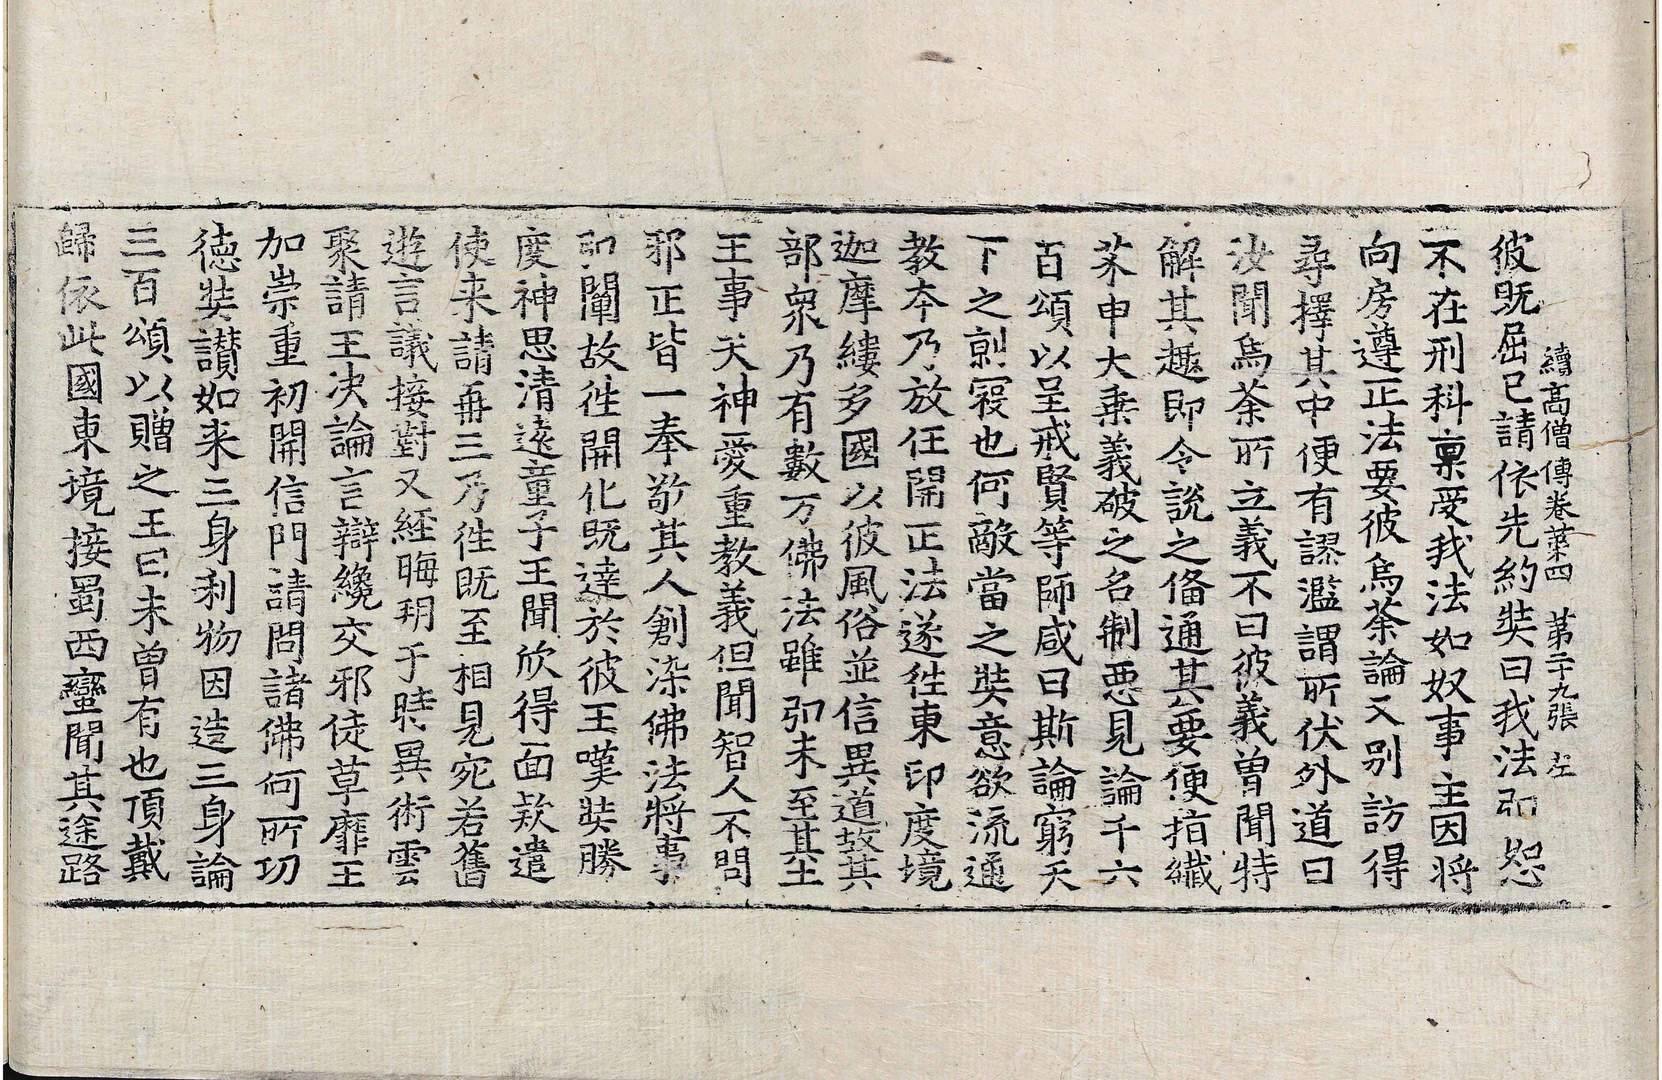 續高僧傳卷第四　第二十九張　左
彼既屈已請依先約奘曰我法弘恕
不在刑科稟受我法如奴事主因將
向房遵正法要彼烏荼論又別訪得
尋擇其中便有謬濫謂所伏外道曰
汝聞烏荼所立義不曰彼義曾聞特
解其趣即令說之俻通其要便指纖
芥申大乗義破之名制惡見論千六
百頌以呈戒賢等師咸曰斯論窮天
下之勍寇也何敵當之奘意欲流通
教夲乃放任開正法遂徃東印度境
迦摩縷多國以彼風俗並信異道故其
部衆乃有數万佛法雖弘未至其土
王事天神愛重教義但聞智人不問
邪正皆一奉敬其人創染佛法將事
弘闡故徃開化既達於彼王嘆奘勝
度神思清遠童子王聞欣得面款遣
使来請再三乃徃既至相見宛若舊
遊言議接對又經晦朔于時異術雲
聚請王决論言辯纔交邪徒草靡王
加崇重初開信門請問諸佛何所功
徳奘讃如来三身利物因造三身論
三百頌以贈之王曰未曽有也頂戴
歸依此國東境接蜀西蠻聞其途路